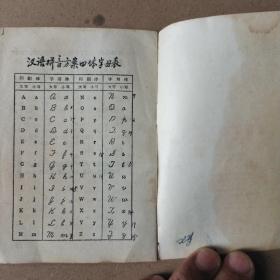 汉语拼音方案四体字母表
印刷体 手写体 印刷体 手写体
大写 小写 大写 小写 大写 小写 大写 小写
A a A a N n N n
B b B b O o O o
C c C c P p P p
D d D d Q q Q q
E e E e R r R r
F f F f S s S s
G g G g T t T t
H h H h U u U u
I i I i V v V v
J j J j W w W w
K k K k X x X x
L l L l Y y Y y
M m M m Z z Z z